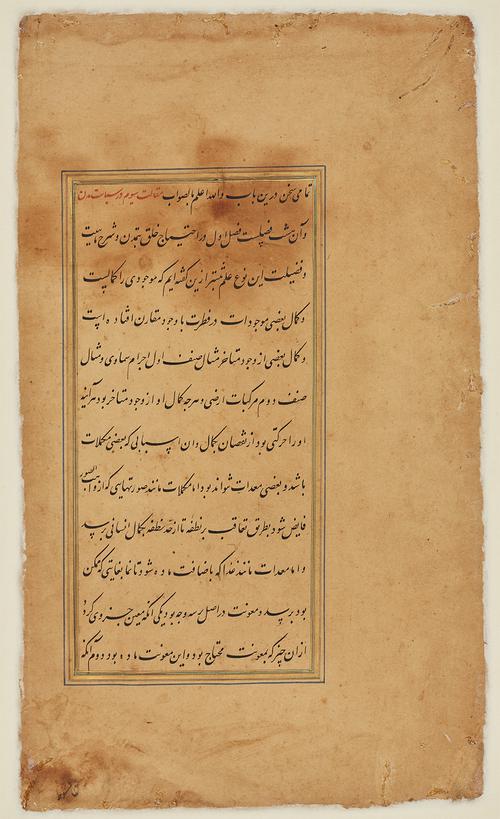 تمامی سخن درین باب والله اعلم بالصواب مقالت سیوم در سیاست مدن
و آن هشت فصلست فصل اول در احتیاج خلق بتمدن و شرح ماهیت
و فضیلت این نوع علم پیشتر ازین گفته ایم که موجودی را کمالیست
و کمال بعضی موجودات در فطرت با وجود مقارن افتاده است
و کمال بعضی از وجود متاخر مثال صنف اول اجرام سماوی و مثال
صنف دوم مرکبات ارضی و هرچه کمال او از وجود متاخر بود هرآینه
او را حرکتی بود از نقصان بکمال و ان اسبابی که بعضی مکملات
باشد و بعضی معدات نتواند بود اما مکملات مانند صورتهایی که از واهب الصور
فایض شود بطریق تعاقب بر نطفه تا از حد نطفه بکمال انسانی برسد
و اما معدات مانند غذا که باضافت ماده شود تا نما بغایتی که ممکن
بود برسد و معونت در اصل بر سه وجه بود یکی آنکه معین جزوی گردد
ازان چیز که بمعونت محتاج بود و این معونت ماده بود دوم آنکه